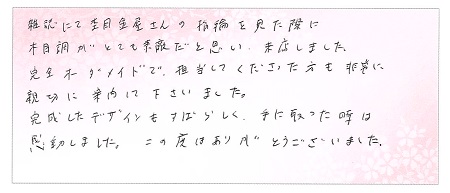 雑誌にて杢目金屋さんの指輪を見た際に
木目調がとても素敵だと思い、来店しました。
完全オーダメイドで、担当してくださった方も非常に
親切に案内して下さいました。
完成したデザインもすばらしく、手に取った時は
感動しました。この度はありがとうございました。